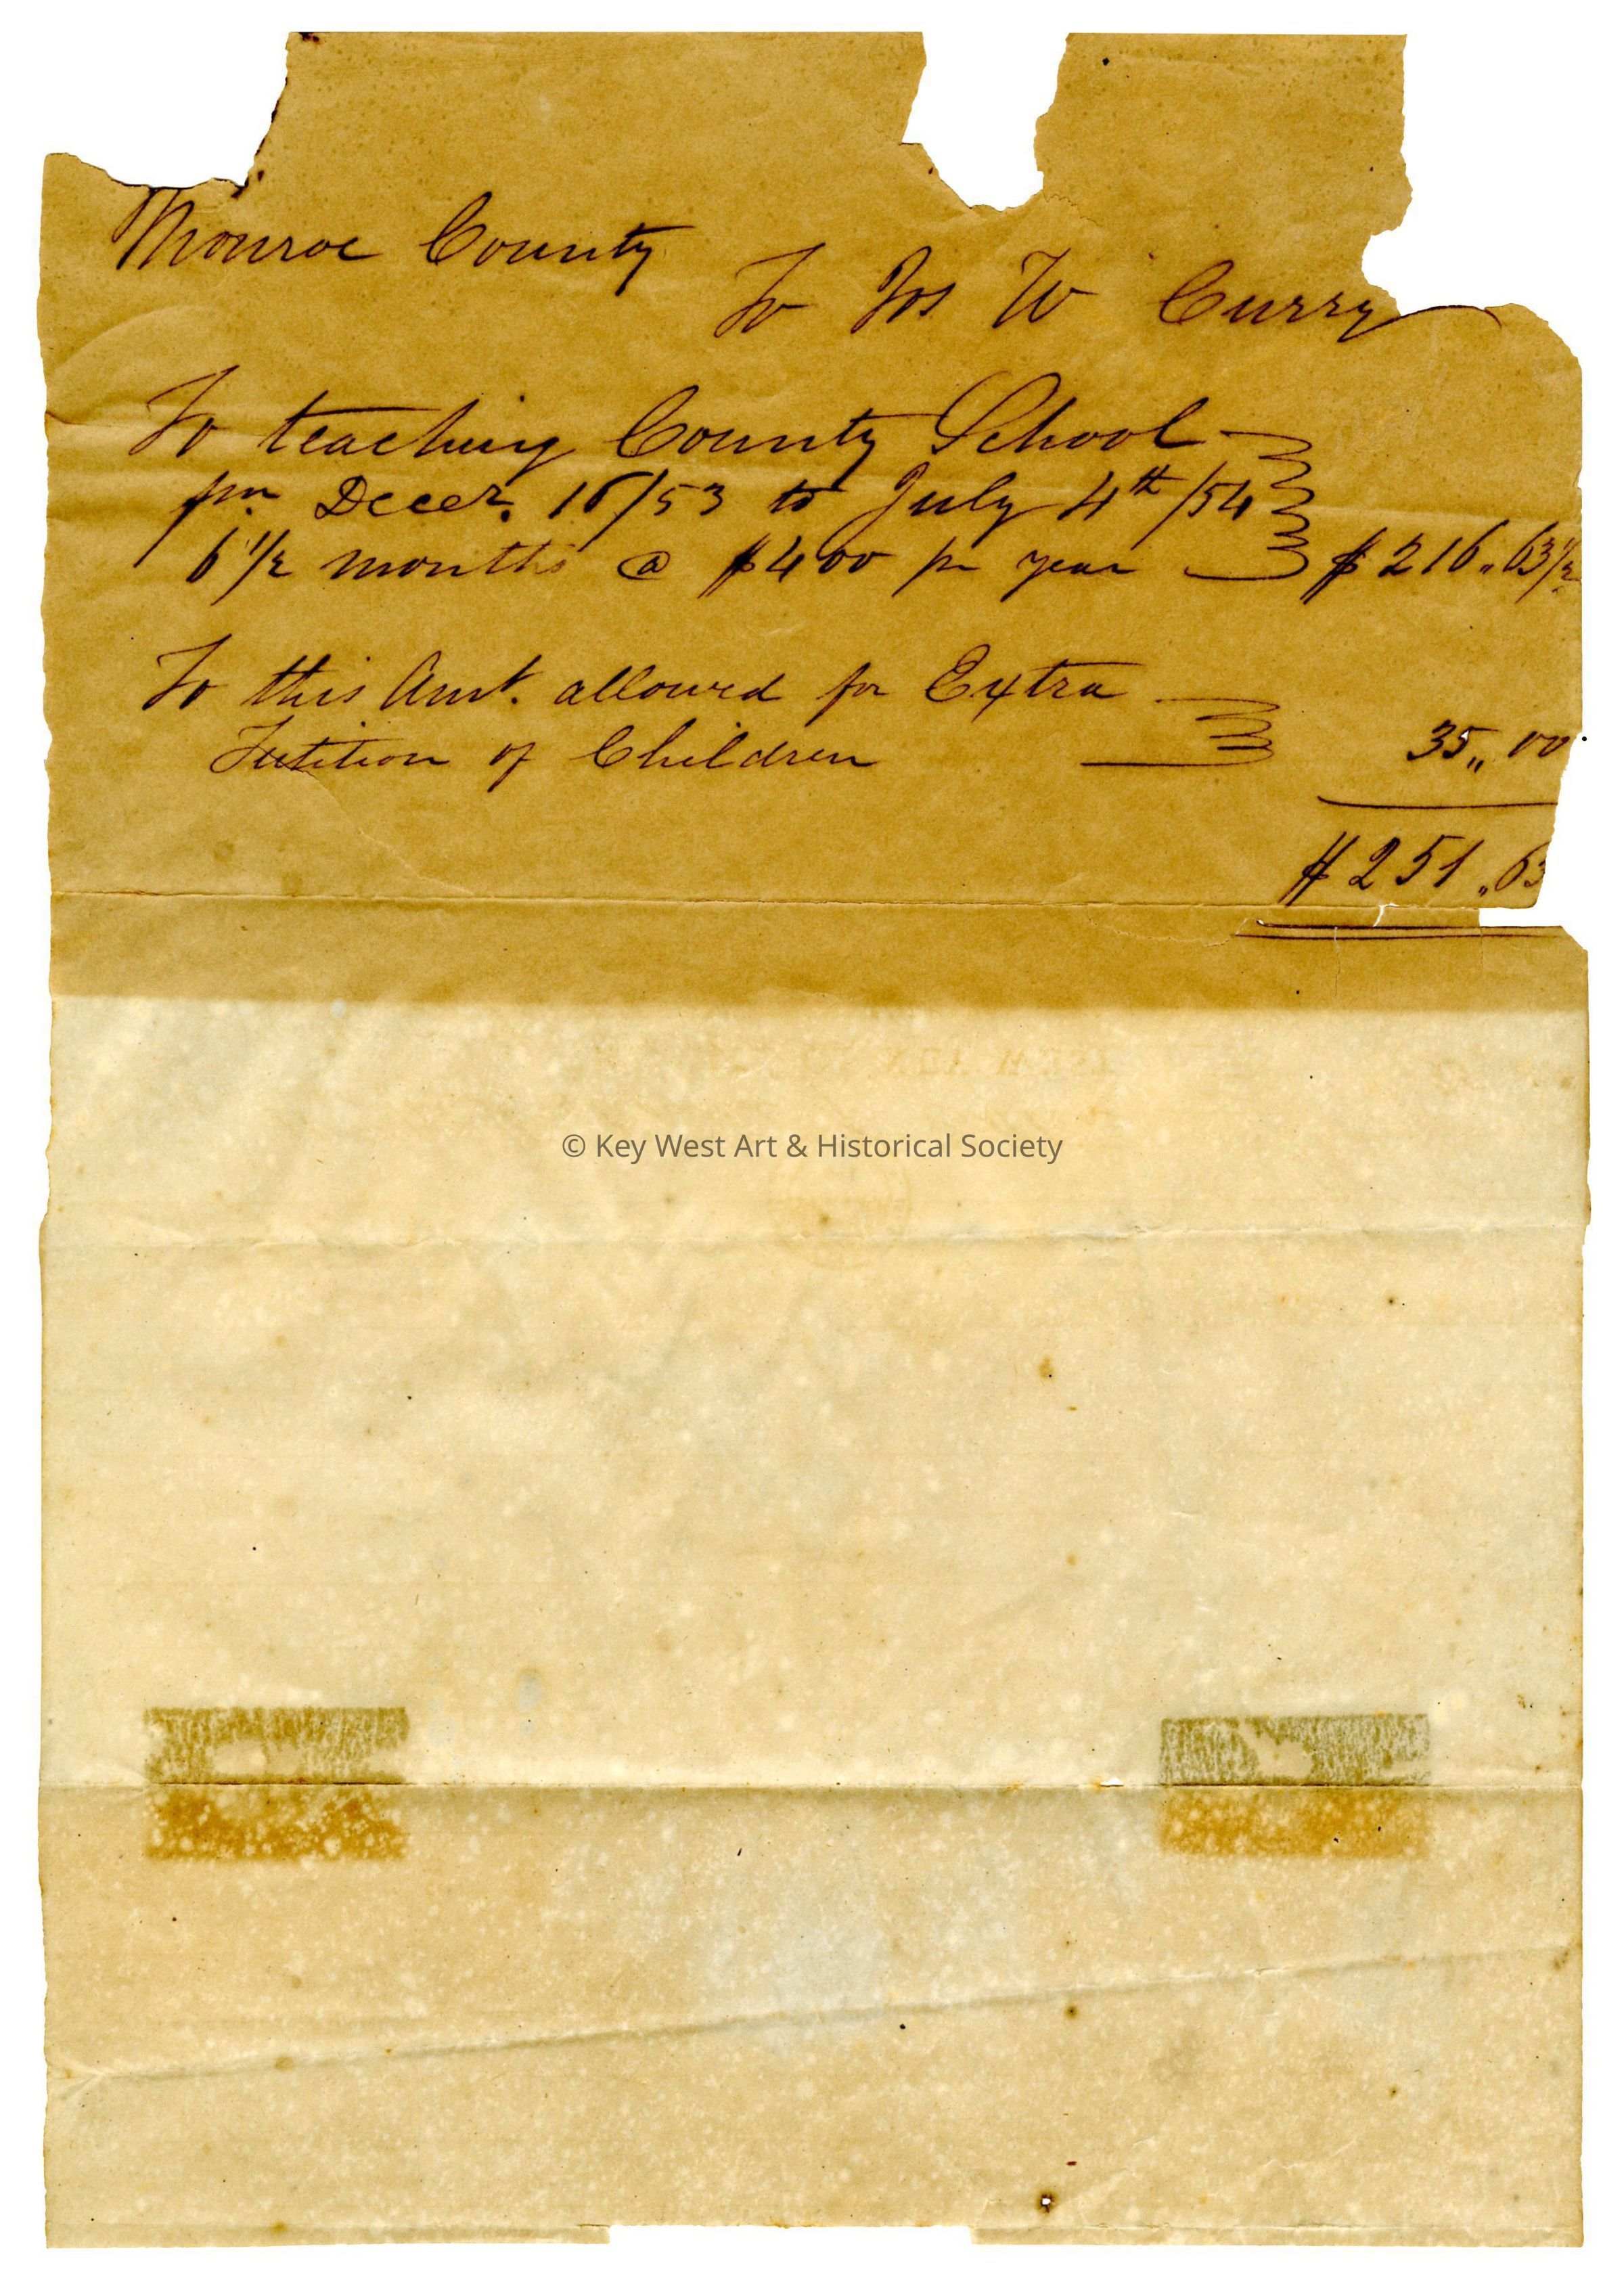 Monroe County
To Jos W Curry
To teaching County School
fm Decer. 16/53 to July 4th /54
6 1/2 months @ $400 pr year $216.,63 1/2
To this Amt. allowed for Extra
Tutition of Children 35,,00
$251,,63
© Key West Art & Historical Society